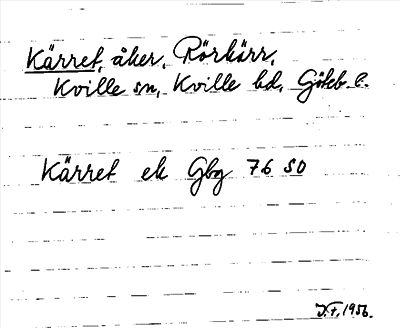 Kärret, åker, Rörkärr,
Kville sn, Kville hd, Göteb. l.
Kärret ek Gbg 76 SO
J.F. 1956.